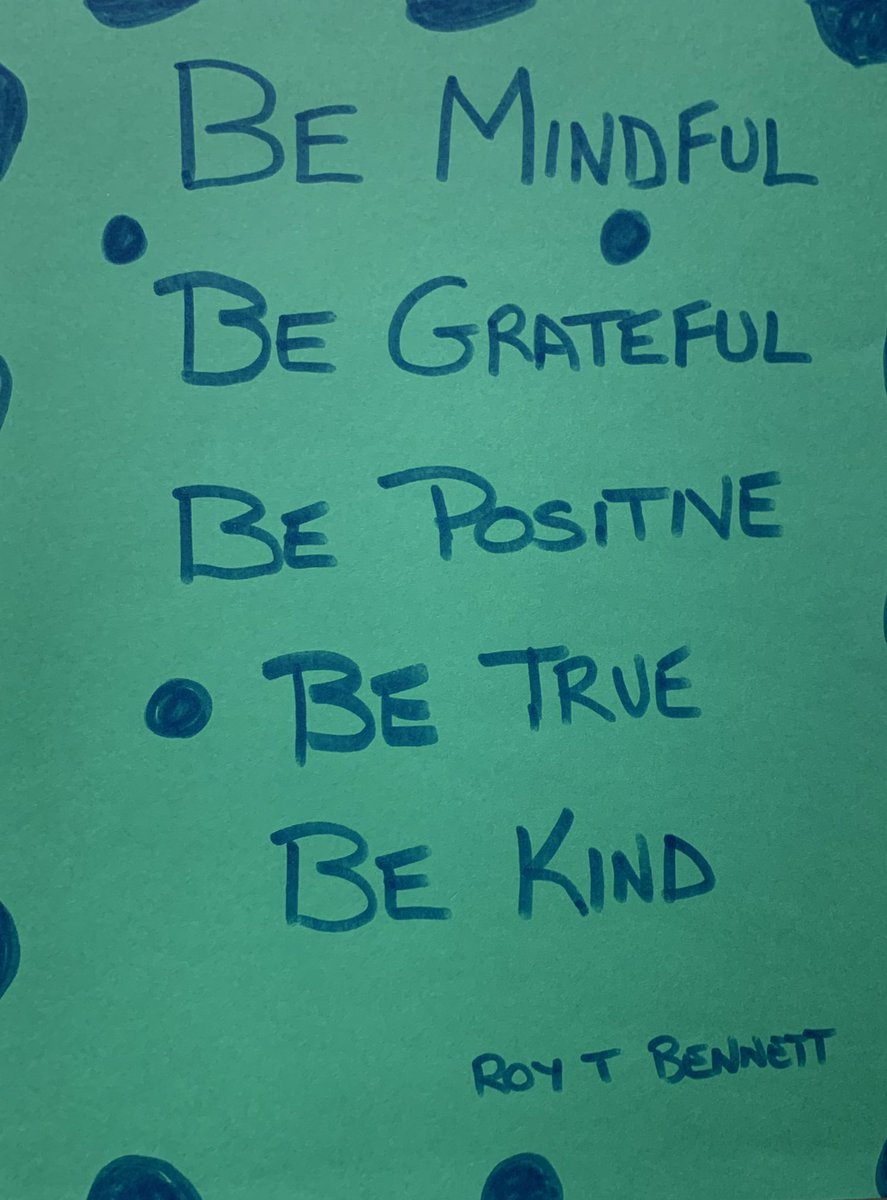 BE MINDFUL
BE GRATEFUL
BE POSITIVE
BE TRUE
BE KIND
ROY T BENNETT